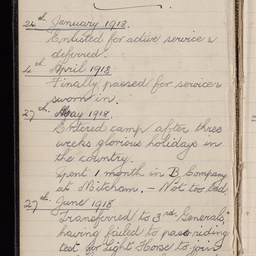 24th January 1918.
Enlisted for active service &
deferred.
4th April 1918
Finally passed for service &
sworn in.
27th May 1918.
Entered camp after three
weeks glorious holidays in
the country.
Spent 1 month in B. Company
at Mitcham. - Not too bad
27th June 1918
Transferred to 3rd Generals
having failed to pass riding
test for Light Horse to join